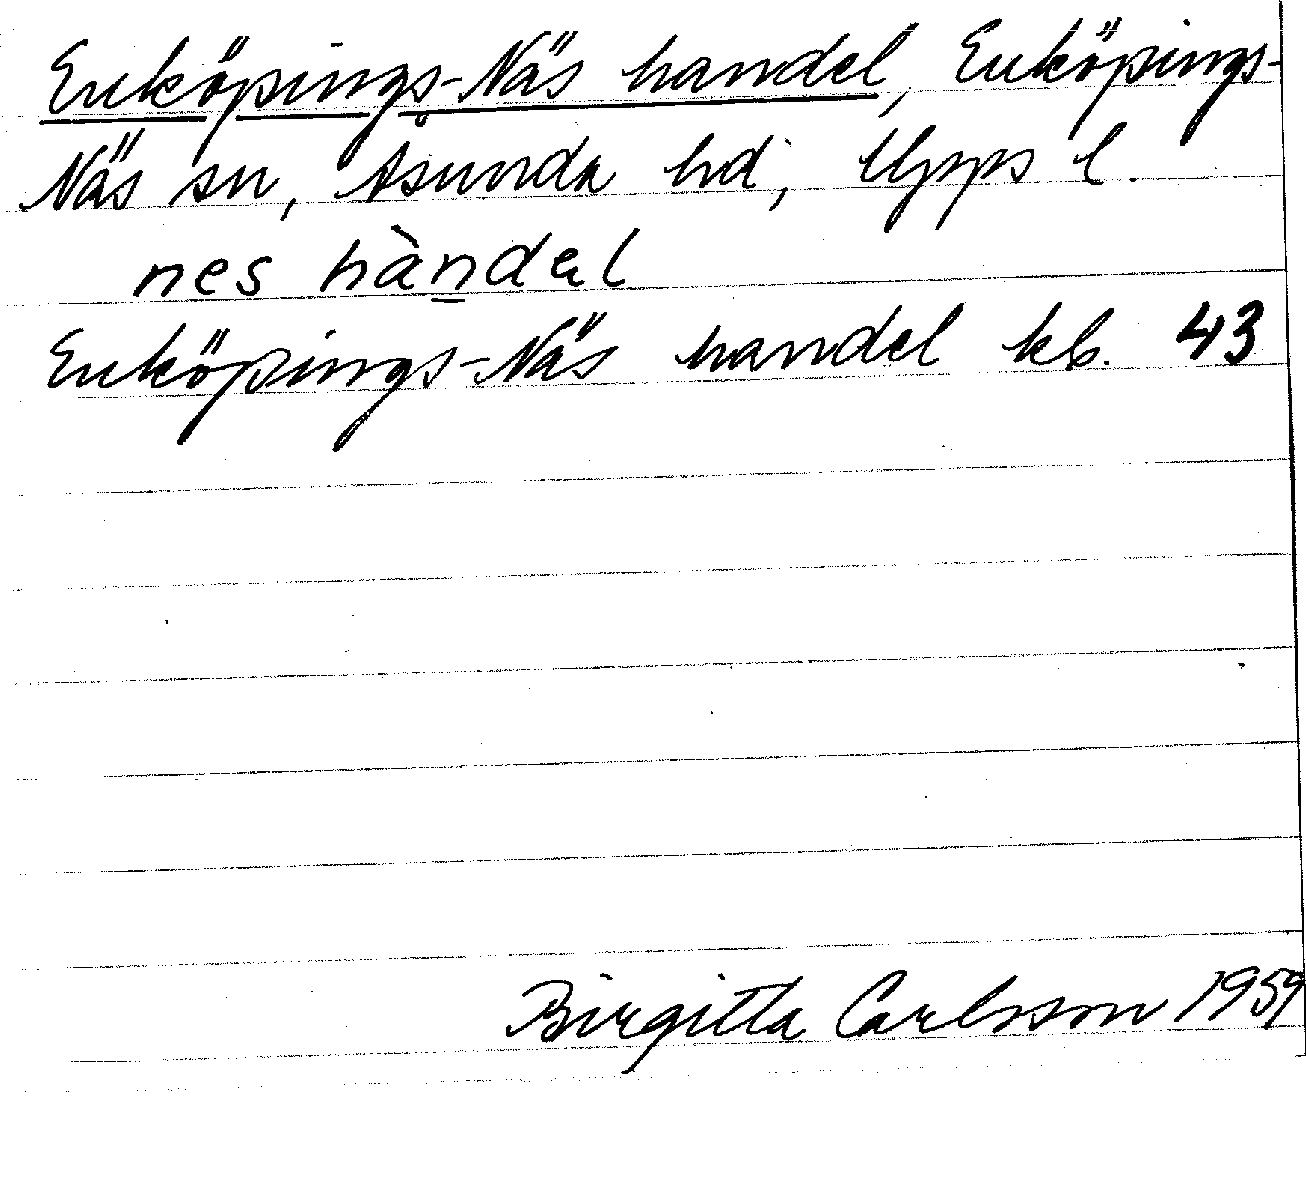 Enköpings-Näs handel, Enköpings-
Näs sn, Åsunda hd, Upps l.
nes hàn̲dəl
Enköpings-Näs handel kb. 43
Birgitta Carlsson 1959